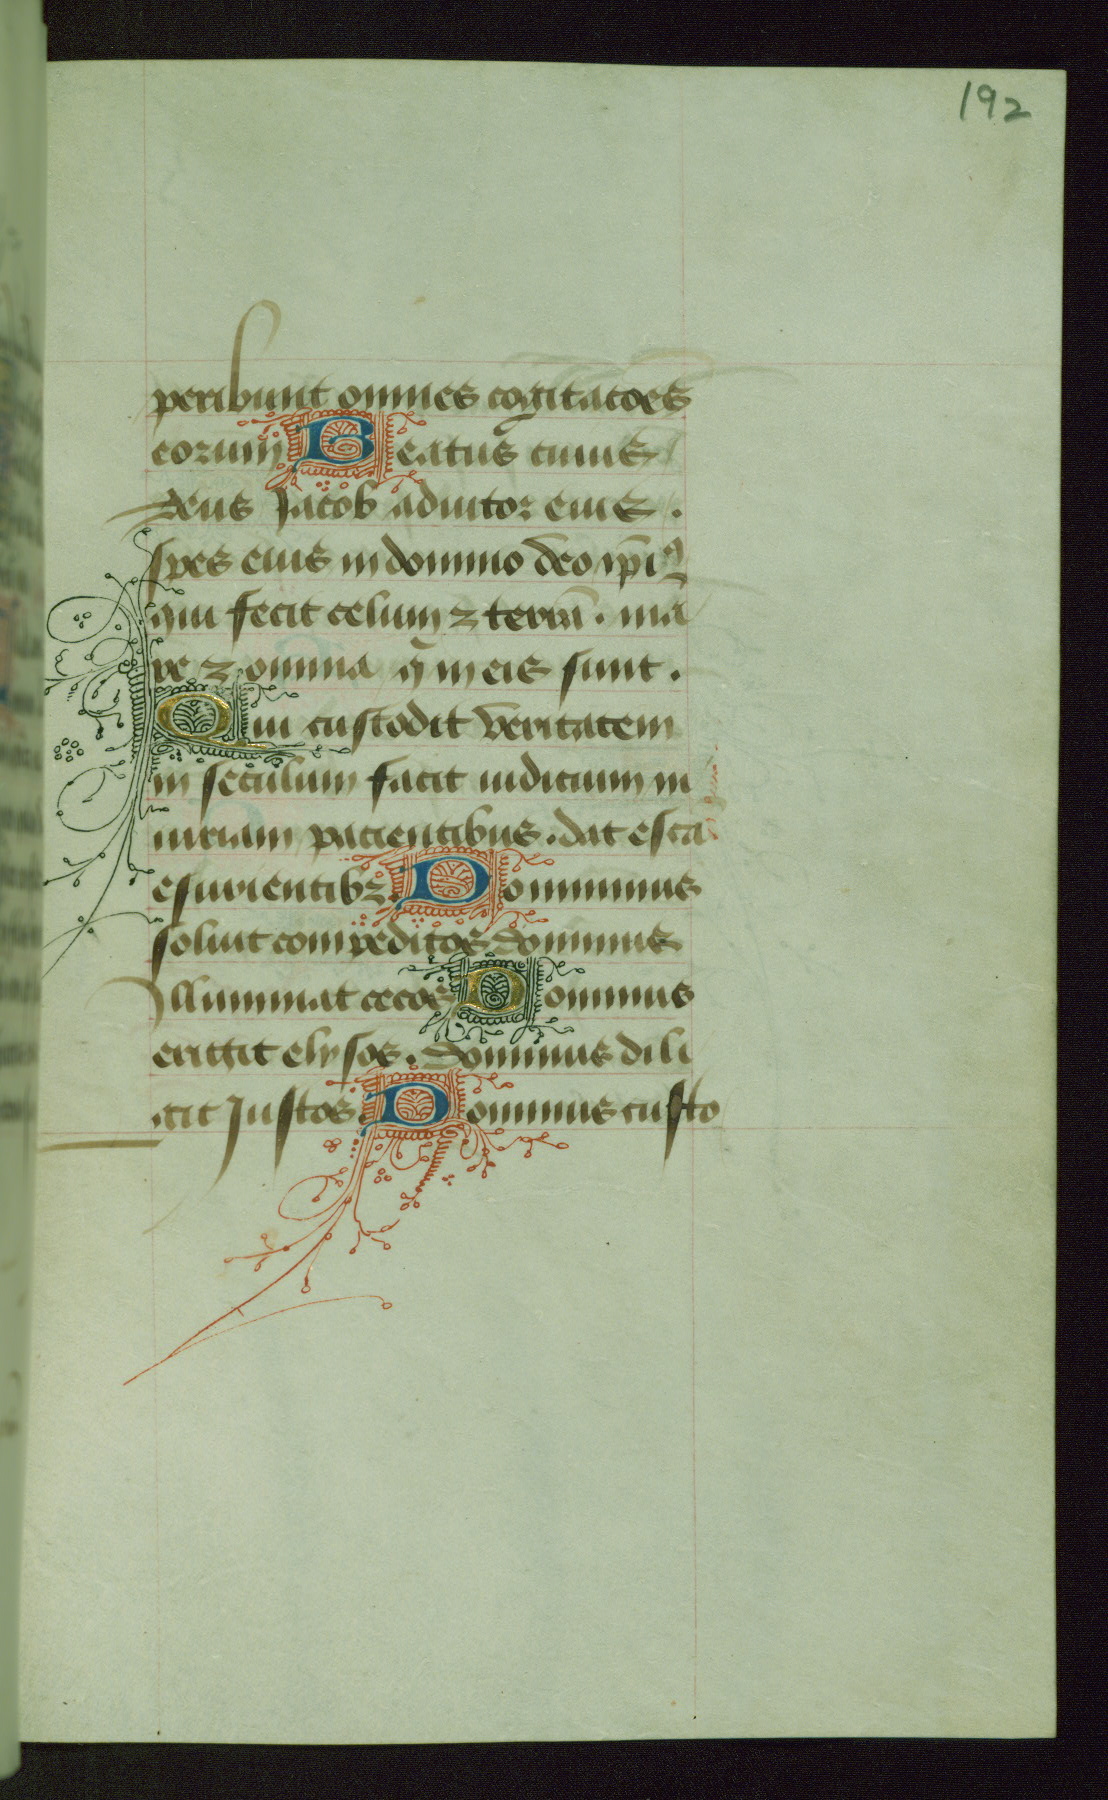 192
peribunt omnes cogitatoēs
eorum Beatus cuius
deus Jacob adiutor eius .
spes eius in domino deo ip̄iꝰ
qui fecit celum ⁊ terrā . ma
re ⁊ omnia q̄ in eis sunt .
Qui custodit veritatem
in seculum facit iudicium in
iuriam pacientibus . dat esca
esurientibꝫ Dominus
soluit compeditos dominus
illuminat cecos Dominus
erigit elysos . dominus dili
git Justos Dominus custo